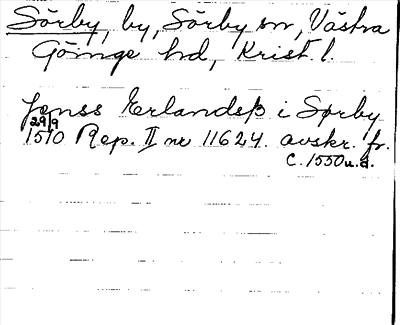 Sörby, by, Sörby sn, Västra
Göinge hd, Krist. l.
Jenss Erlandsß i Sørby
29/9
1510 Rep. II nr 11624. avskr. fr.
c. 1550 u.a.